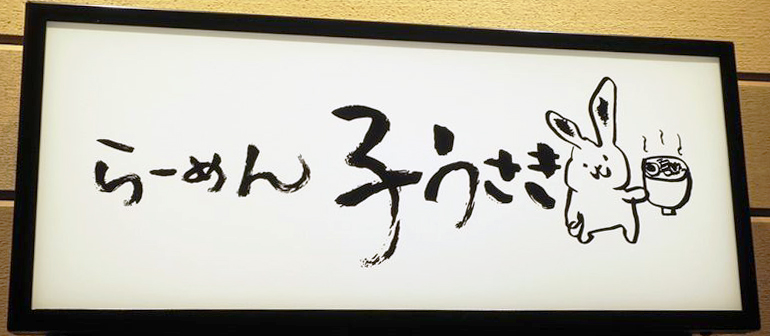 らーめん 子うさき